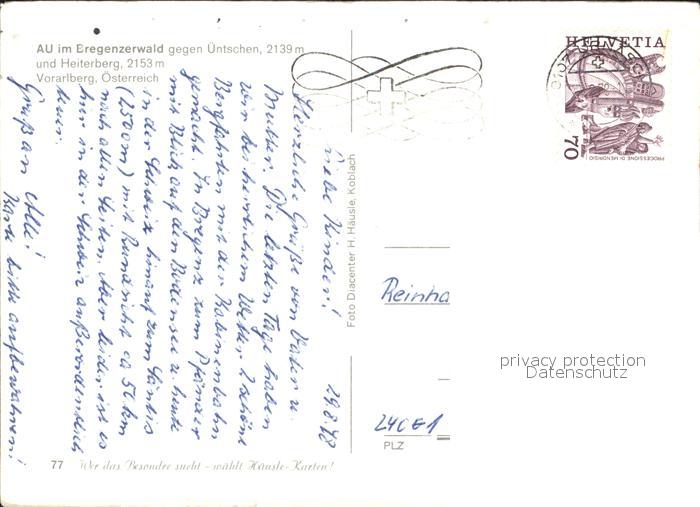 AU im Bregenzerwald gegen Üntschen, 2139 m
und Heiterberg, 2153 m
Vorarlberg, Österreich
29.8.78
Liebe Kinder!
Herzliche Grüße vom Vater u.
Mutter. Die letzten Tage haben
wir bei herrlichem Wetter 2 schöne
Bergfahrten mit der Kabinenbahn
gemacht. In Bregenz zum Pfänder
mit Blick auf den Bodensee u. heute
in der Schweiz hinauf zum Säntis
(2500m) mit Rundsicht ca 50 km
nach allen Seiten. Aber leider ist es
hier in der Schweiz außerordentlich
teuer.
Gruß an Alle!
Karte bitte aufbewahren!
Foto Diacenter H. Häusle, Koblach
HELVETIA
70
PROCESSIONE DI MENDRISIO
Reinha
privacy protection
Datenschutz
240E1
PLZ
77 Wer das Besondre sucht - wählt Häusle-Karten!